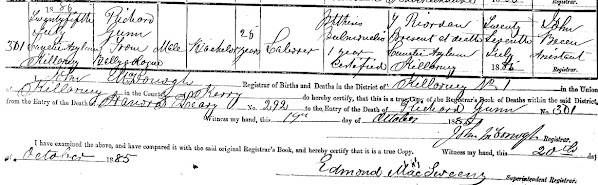 Registrar.
1886
Twentyfifth Richard 25 Phthisis J Riordan Twenty John
July Gunn Pulmonalis Present at death Seventh Breen
301 County Asylum From Male Bachelor years Labourer 1 year County Asylum July Assistant
Killarney Ballyhogue Certified Killarney 1885 Registrar.
John McDonough Registrar of Births and Deaths in the District of Killarney No. 1 in the Union
of Killarney in the County of Kerry do hereby certify, that this is a true Copy of the Registrar's Book of Deaths within the said District,
from the Entry of the Death of Hanora Leary No. 292 to the Entry of the Death of Richard Gunn No. 301
Witness my hand, this 19th day of October 1885
John McDonough Registrar.
I have examined the above, and have compared it with the said original Registrar's Book, and hereby certify that it is a true Copy. Witness my hand, this 20th
of October 1885
Edmond MacSweeny Superintendent Registrar.